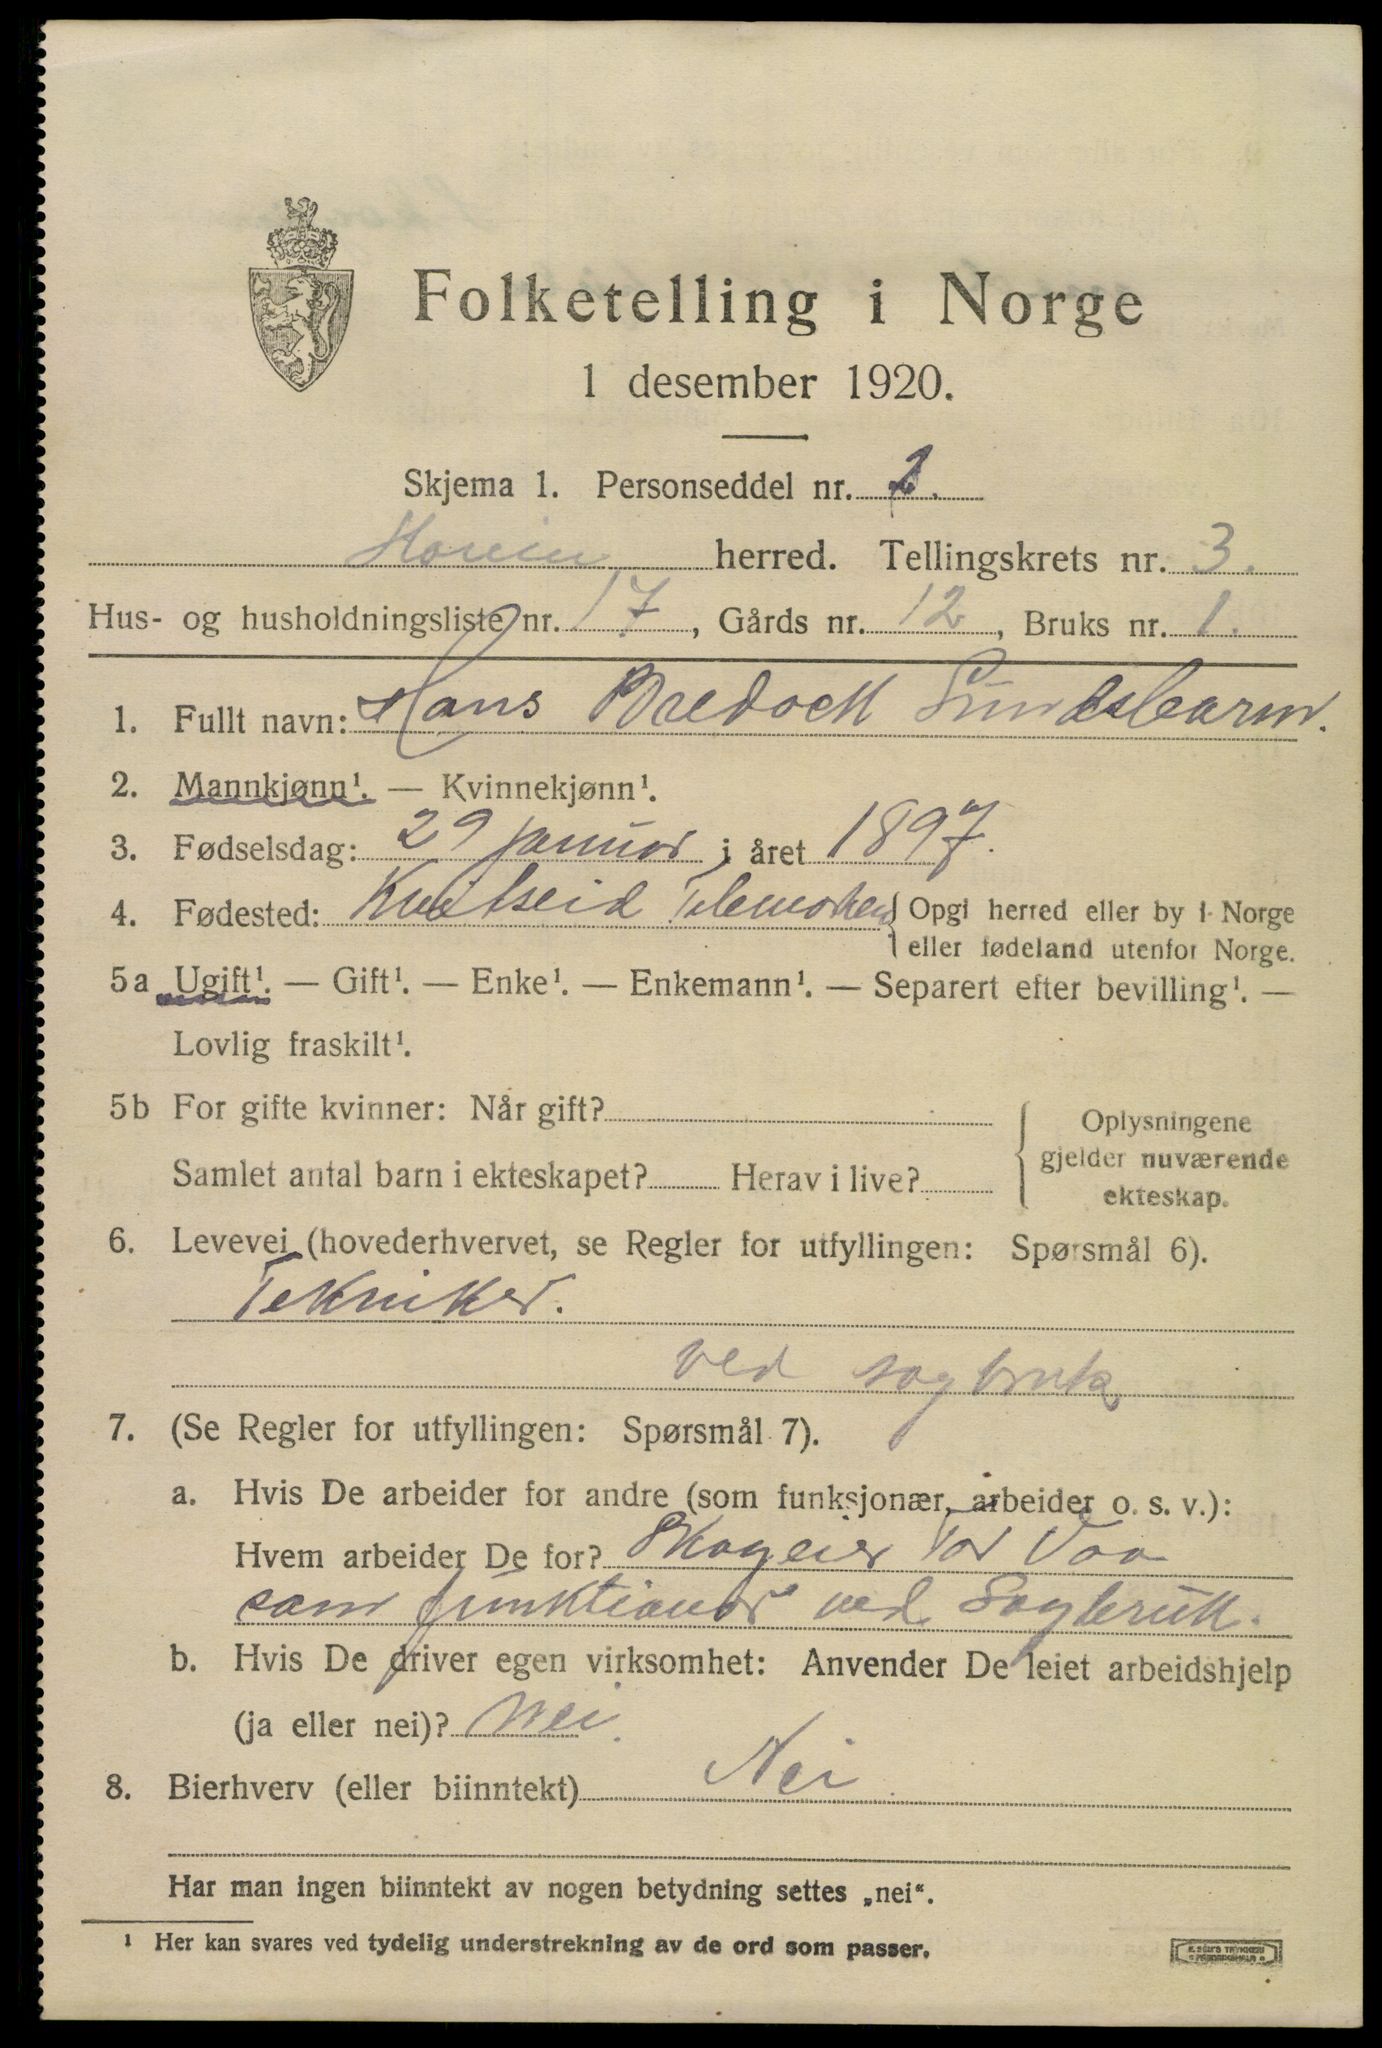 Folketelling i Norge
1 desember 1920.
Skjema 1. Personseddel nr. 1.
Hovin herred. Tellingskrets nr. 3.
Hus- og husholdningsliste nr. 17, Gårds nr. 12, Bruks nr. 1.
1. Fullt navn: Hans Bredoch Sundsbarm.
2. Mannkjønn¹. — Kvinnekjønn¹.
3. Fødselsdag: 29 januar i året 1897.
4. Fødested: Kvitseid Telemarken { Opgi herred eller by i Norge
eller fødeland utenfor Norge.
5a Ugift¹. — Gift¹. — Enke¹. — Enkemann¹. — Separert efter bevilling¹. —
Lovlig fraskilt¹.
5b For gifte kvinner: Når gift?
Samlet antal barn i ekteskapet? Herav i live?
Oplysningene
gjelder nuværende
ekteskap.
6. Levevei (hovederhvervet, se Regler for utfyllingen: Spørsmål 6).
Tekniker.
ved sagbruk
7. (Se Regler for utfyllingen: Spørsmål 7).
a. Hvis De arbeider for andre (som funksjonær, arbeider o. s. v.):
Hvem arbeider De for? Skogeier Tor Vaa
som funktionær ved Sagbruk.
b. Hvis De driver egen virksomhet: Anvender De leiet arbeidshjelp
(ja eller nei)? Nei.
8. Bierhverv (eller biinntekt) Nei
Har man ingen biinntekt av nogen betydning settes „nei“.
¹ Her kan svares ved tydelig understrekning av de ord som passer.